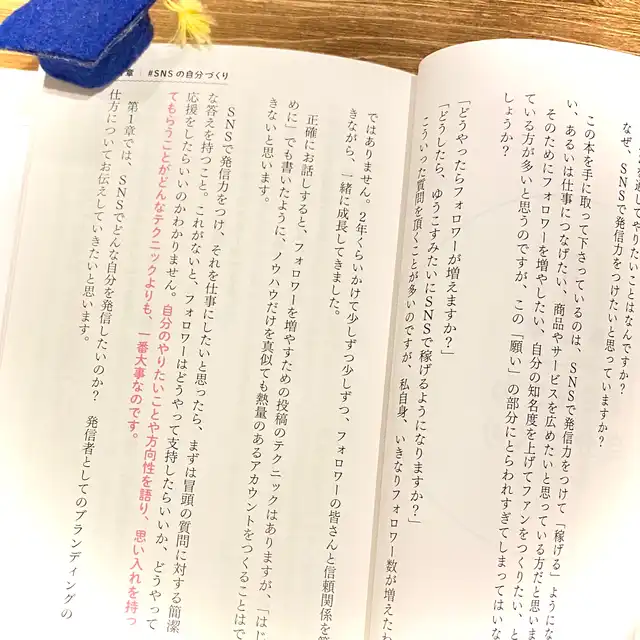 を通してやりたいことはなんですか？
なぜ、SNSで発信力をつけたいと思っていますか？
この本を手に取って下さっているのは、SNSで発信力をつけて「稼げる」ようにな
い、あるいは仕事につなげたい、商品やサービスを広めたいと思っている方だと思いま
そのためにフォロワーを増やしたい、自分の知名度を上げてファンをつくりたい、と
ている方が多いと思うのですが、この「願い」の部分にとらわれすぎてしまってはいな
しょうか？
「どうやったらフォロワーが増えますか？」
「どうしたら、ゆうこすみたいにSNSで稼げるようになりますか？」
こういった質問を頂くことが多いのですが、私自身、いきなりフォロワー数が増えたわ
章 | #SNSの自分づくり
ではありません。2年くらいかけて少しずつ少しずつ、フォロワーの皆さんと信頼関係を
きながら、一緒に成長してきました。
正確にお話しすると、フォロワーを増やすための投稿のテクニックはありますが、「はじ
めに」でも書いたように、ノウハウだけを真似ても熱量のあるアカウントをつくることはで
きないと思います。
SNSで発信力をつけ、それを仕事にしたいと思ったら、まずは冒頭の質問に対する簡潔
な答えを持つこと。これがないと、フォロワーはどうやって支持したらいいか、どうやって
応援をしたらいいのかわかりません。自分のやりたいことや方向性を語り、思い入れを持っ
てもらうことがどんなテクニックよりも、一番大事なのです。
第1章では、SNSでどんな自分を発信したいのか？　発信者としてのブランディングの
仕方についてお伝えしていきたいと思います。